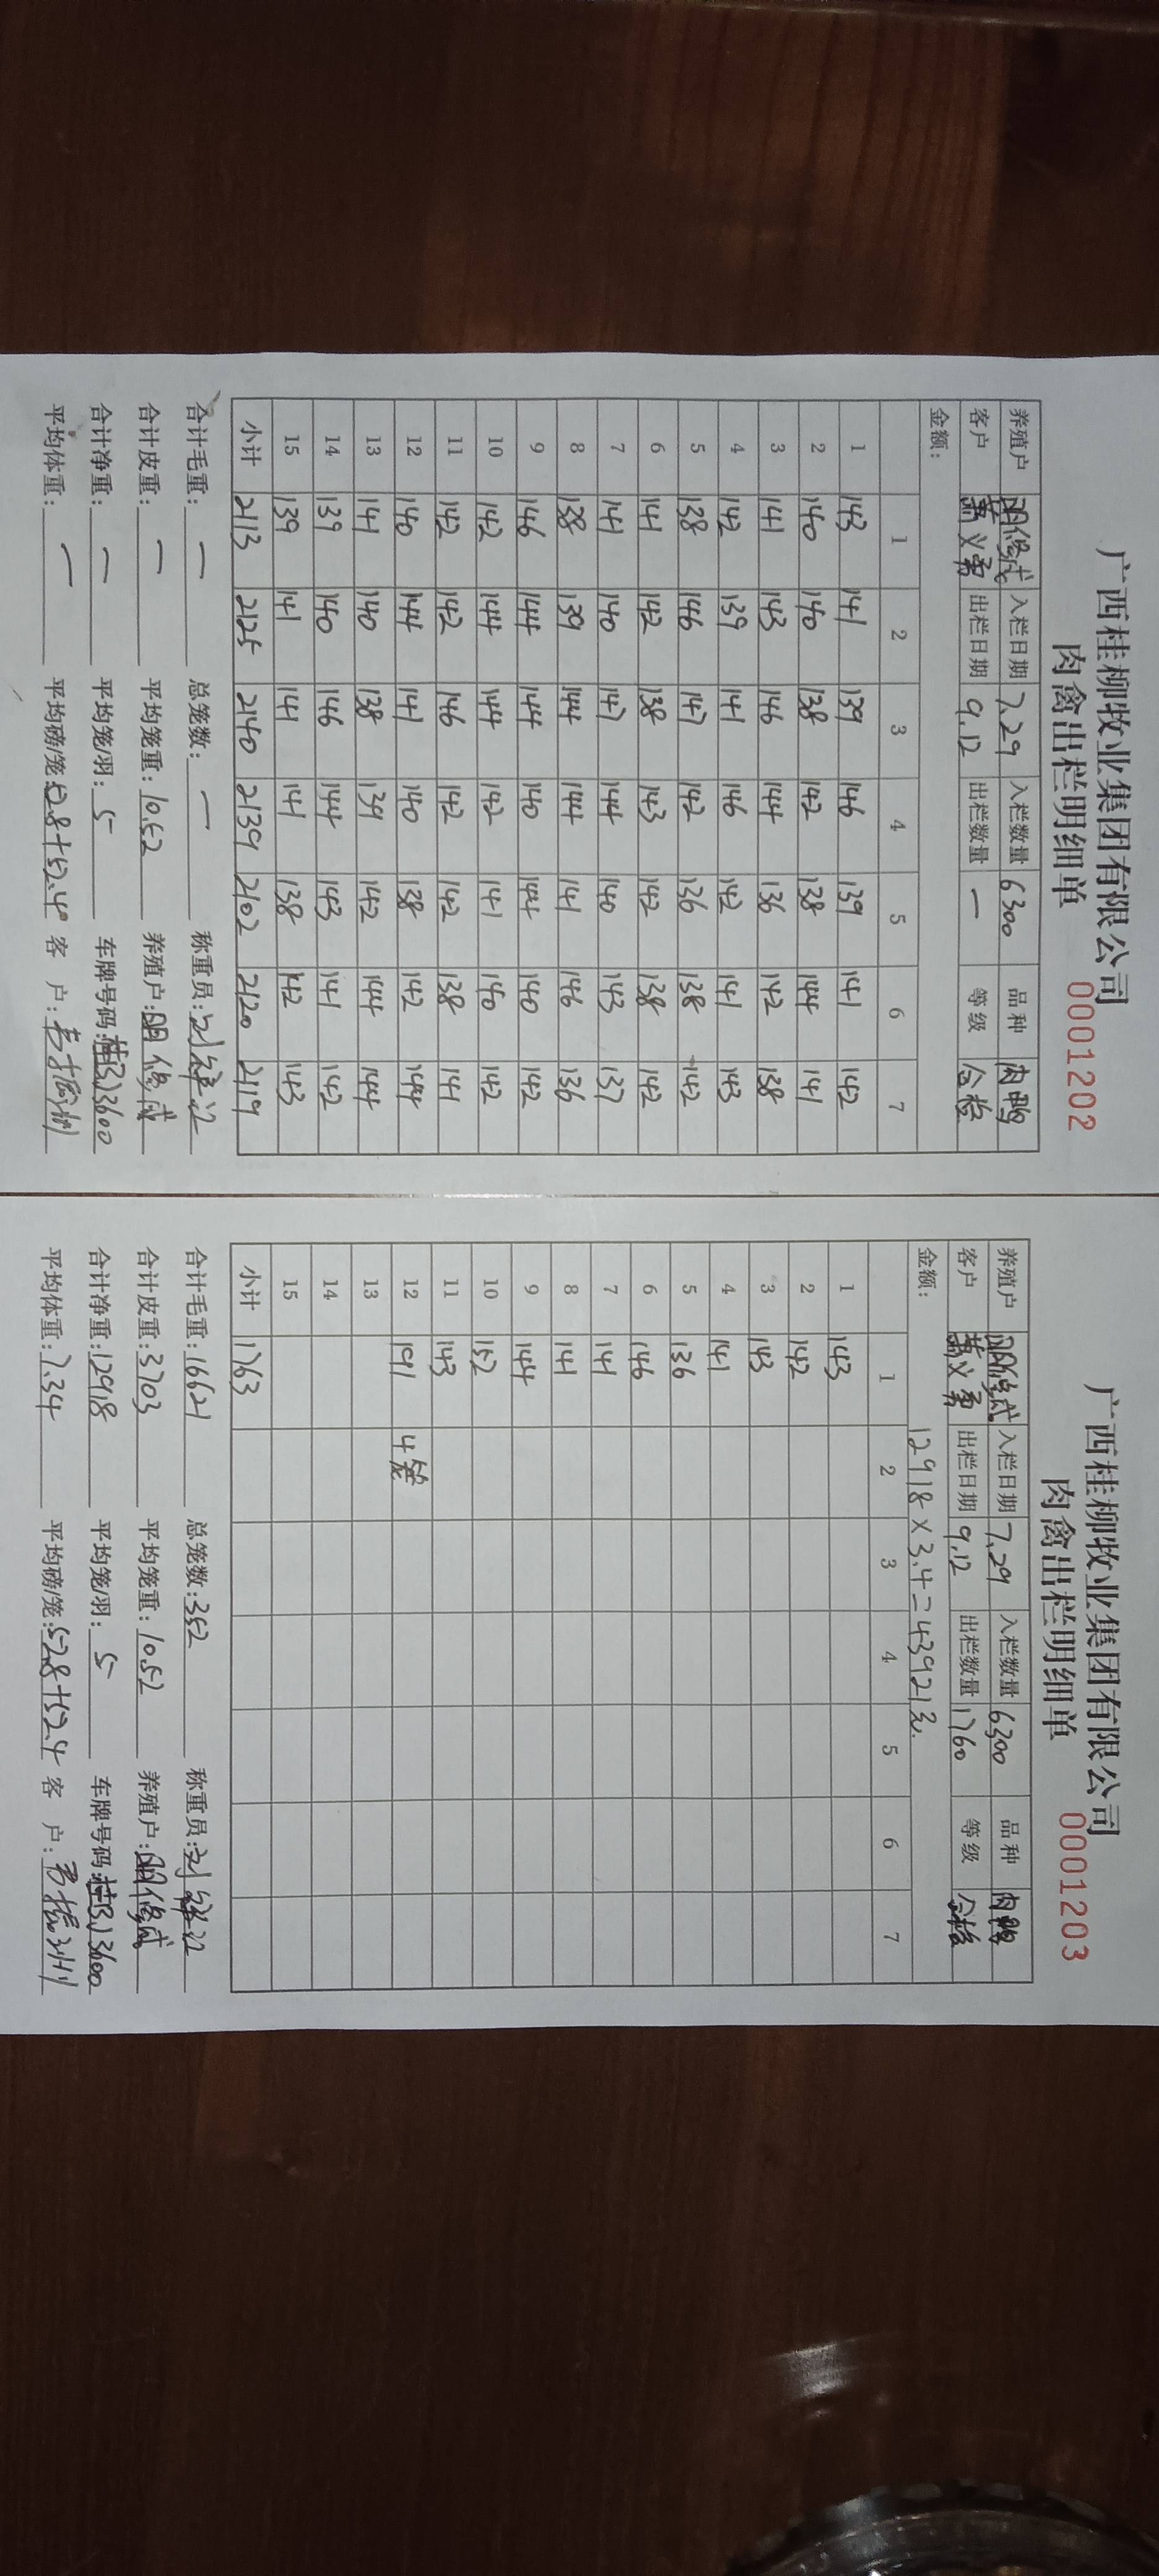 广西桂柳牧业集团有限公司
肉禽出栏明细单 0001202
养殖户 入栏日期 7.29 入栏数量 6300 品种 肉鸭
客户 出栏日期 9.12 出栏数量 一 等级 合格
金额：
1 2 3 4 5 6 7
1 143 141 139 146 139 141 142
2 140 140 138 142 138 144 141
3 141 143 146 144 136 142 138
4 142 139 141 146 142 141 143
5 138 146 147 142 136 138 142
6 141 142 138 143 142 138 142
7 141 140 147 144 140 143 137
8 138 139 144 144 141 146 136
9 146 144 144 140 144 140 142
10 142 144 144 142 141 140 142
11 142 142 146 142 142 138 141
12 140 144 141 140 138 142 144
13 141 140 138 139 142 144 144
14 139 140 146 144 143 141 142
15 139 141 141 141 138 142 143
小计 2113 2125 2140 2139 2102 2120 2119
合计毛重：一 总笼数：一 称重员：
合计皮重：一 平均笼重：10.52 养殖户：
合计净重：一 平均笼/羽：5 车牌号码：
平均体重：一 平均磅/笼：52.8+52.4 客 户：
广西桂柳牧业集团有限公司
肉禽出栏明细单 0001203
养殖户 入栏日期 7.29 入栏数量 6300 品种 肉鸭
客户 出栏日期 9.12 出栏数量 1760 等级 合格
金额： 12918×3.4=43921元.
1 2 3 4 5 6 7
1 143
2 142
3 143
4 141
5 136
6 146
7 141
8 141
9 144
10 152
11 143
12 191 4笼
13
14
15
小计 1763
合计毛重：16621 总笼数：352 称重员：
合计皮重：3703 平均笼重：10.52 养殖户：
合计净重：12918 平均笼/羽：5 车牌号码：
平均体重：7.34 平均磅/笼：52.8+52.4 客 户：